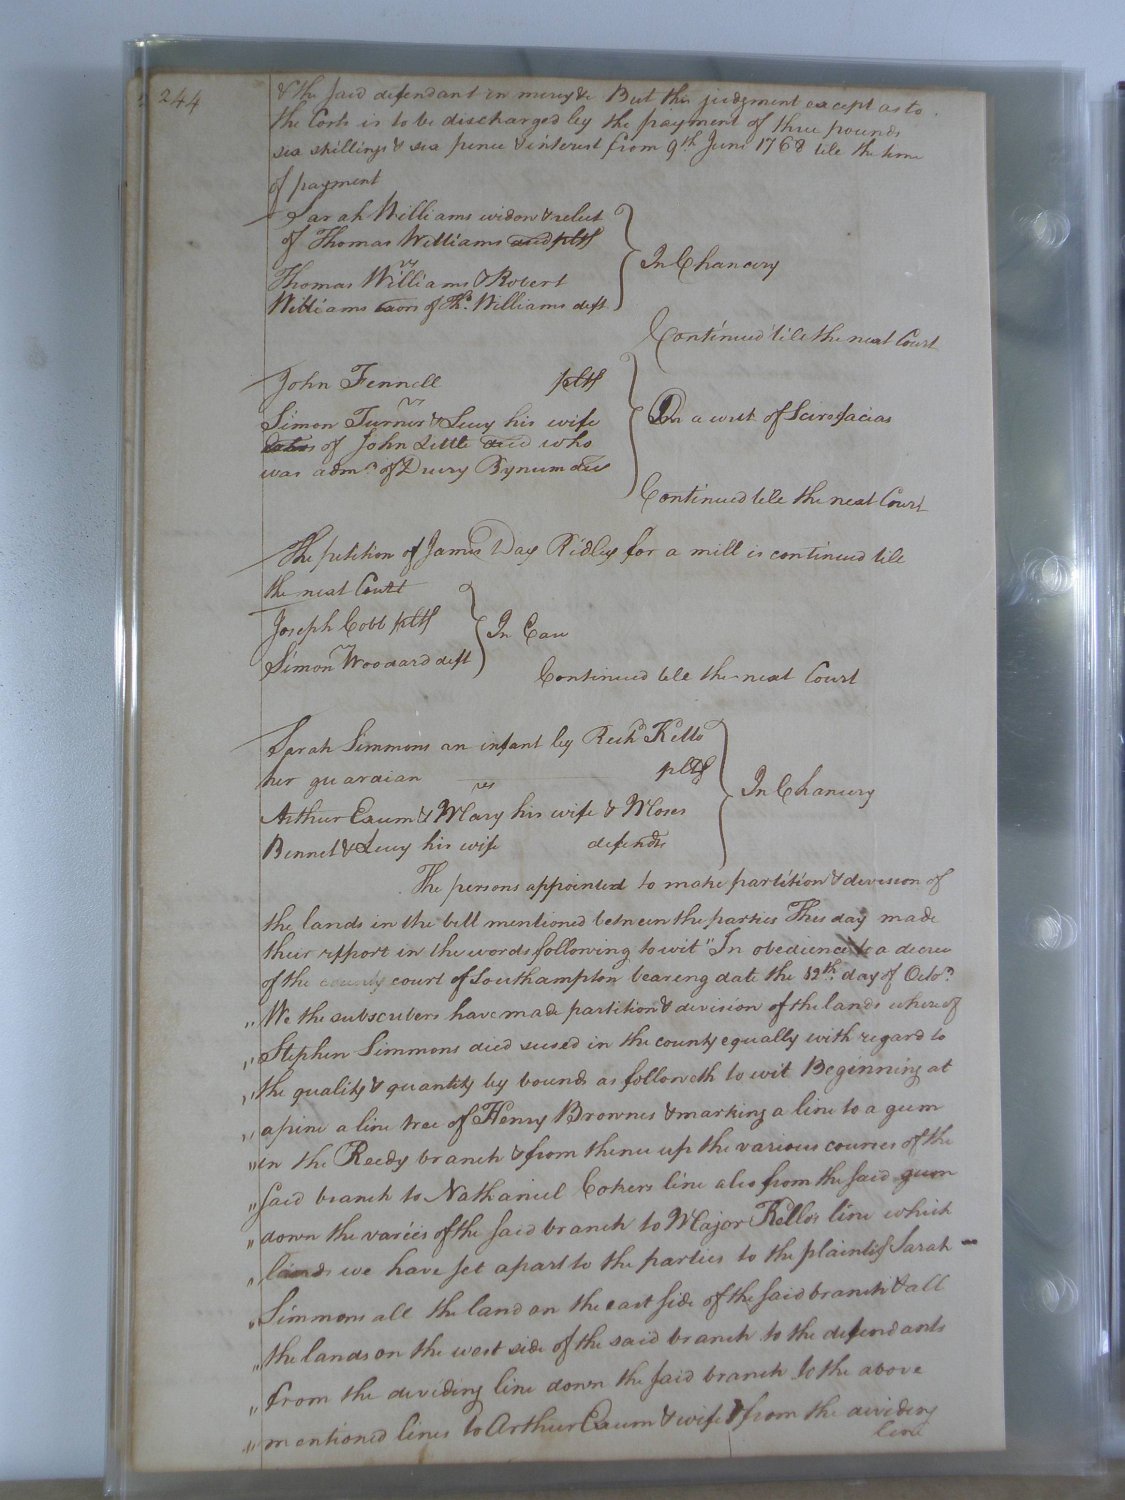 244
& the said defendant in mercy &c But this judgment except as to
the Costs is to be discharged by the payment of three pounds
six skillings & six pence & interest from 9th June 1768 till the time
of payment
Sarah Williams widow & relict
of Thomas Williams plts
vs
Thomas Williams & Robert
Williams exors of Ths. Williams deft
In Chancery
Continued till the next Court
John Fennell plts
vs
Simon Turner & Lucy his wife
of John Little decd who
was admr. of Drury Bynum decd
On a writ of Scirefacias
Continued till the next Court
The petition of James Day Ridley for a mill is continued till
the next Court
Joseph Cobb pltf
vs
Simon Woodard deft
In Case
Continued till the next Court
Sarah Simmons an infant by Richd Kello
her guardian pltf
vs
Arthur Exum & Mary his wife & Moses
Bennet & Lucy his wife defendts
In Chancery
The persons appointed to make partition & division of
the lands in the bill mentioned between the parties This day made
their report in the words following to wit "In obedience to a decree
of the county court of Southampton bearing date the 12th day of Octor.
" We the subscribers have made partition & division of the lands whereof
" Stephen Simmons died seised in the county equally with regard to
" the quality & quantity by bounds as followeth to wit Beginning at
" a pine a line tree of Henry Brownes & marking a line to a gum
" in the Reedy branch & from thence up the various courses of the
" said branch to Nathaniel Cokers line also from the said gum
" down the varies of the said branch to Major Kellos line which
" lands we have set apart to the parties to the plaintiff Sarah
" Simmons all the land on the east side of the said branch & all
" the lands on the west side of the said branch to the defendants
" from the dividing line down the said branch to the above
" mentioned lines to Arthur Exum & wife & from the dividing
line